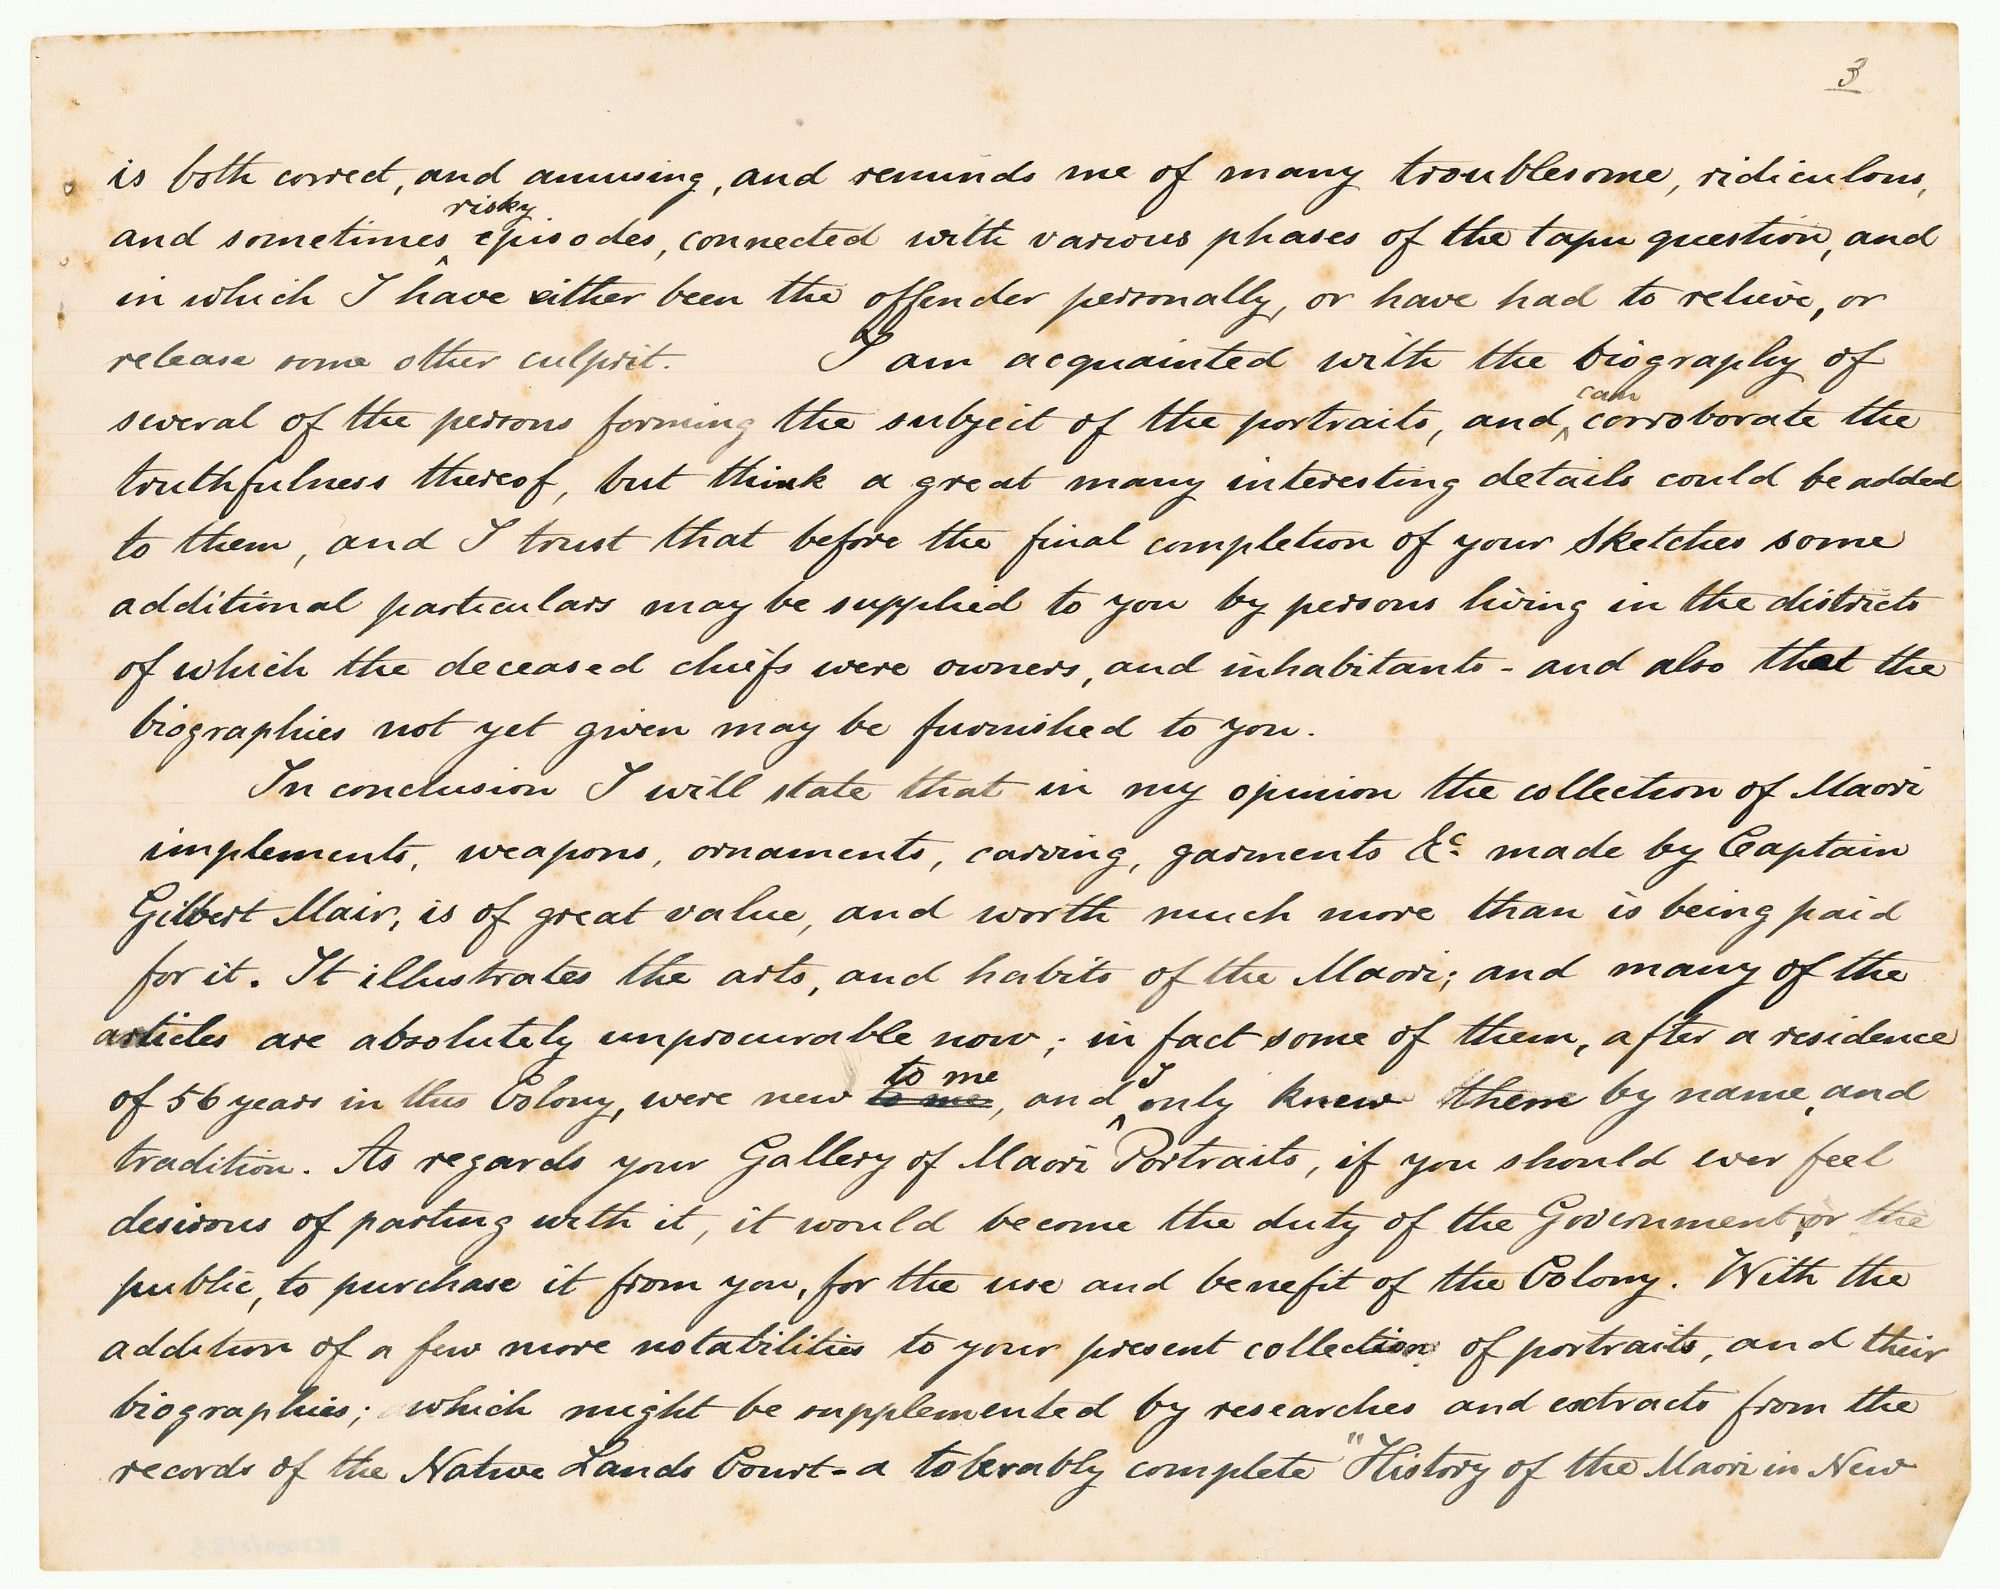 3
is both correct, and amusing, and reminds me of many troublesome, ridiculous,
risky
and sometimes ^ episodes, connected with various phases of the tapu question, and
in which I have either been the offender personally, or have had to relieve, or
release some other culprit. I am acquainted with the biography of
can
several of the persons forming the subject of the portraits, and, ^ corroborate the
truthfulness thereof, but think a great many interesting details could be added
to them, and I trust that before the final completion of your Sketches some
additional particulars may be supplied to you by persons living in the districts
of which the deceased chiefs were owners, and inhabitants - and also that the
biographies not yet given may be furnished to you.
In conclusion I will state that in my opinion the collection of Maori
implements, weapons, ornaments, carving, garments &c. made by Captain
Gilbert Mair, is of great value, and worth much more than is being paid
for it. It illustrates the arts, and habits of the Maori; and many of the
articles are absolutely unprocurable now; in fact some of them, after a residence
to me I
of 56 years in this Colony, were new to me, and ^ only knew them by name, and
tradition. As regards your Gallery of Maori Portraits, if you should ever feel
desirous of parting with it, it would become the duty of the Government, or the
public, to purchase it from you, for the use and benefit of the Colony. With the
addition of a few more notabilities to your present collection of portraits, and their
biographies; which might be supplemented by researches and extracts from the
records of the Native Lands Court - a tolerably complete "History of the Maori in New